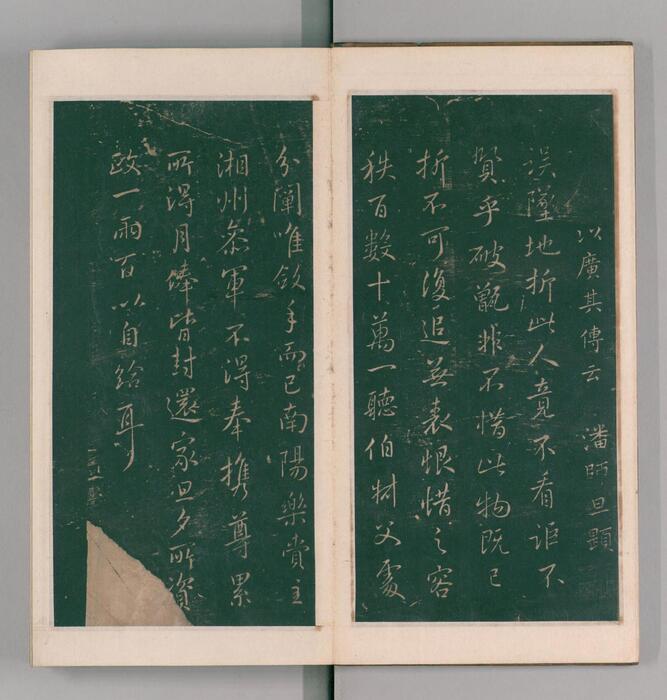 以廣其傳云 潘師旦題
誤墜地折此人竟不看詎不
賢乎破甑非不惜此物既已
折不可復追並表恨惜之容
秩百數十萬一聽伯父處
分闔唯斂手而已南陽樂賞主
湘州參軍不得奉携尊累
所得月俸皆封還家旦夕所資
政一兩百以自給耳